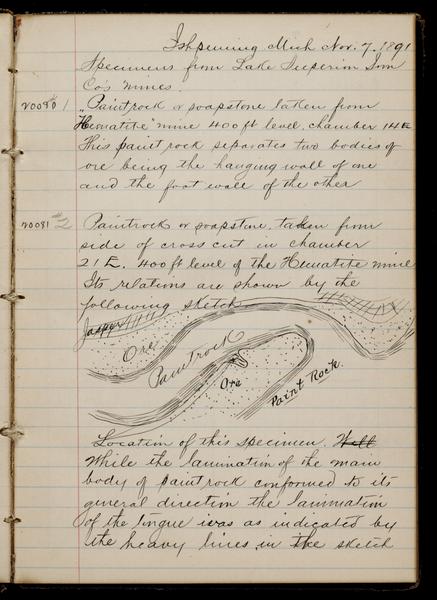 Ishpeming Mich Nov. 7. 1891
Specimens from Lake Superior Iron
Co's mines.
20080 #1 "Paintrock or soapstone taken from
Hematite" mine 400 ft level, chamber 14 E
This paint rock separates two bodies of
ore being the hanging wall of one
and the foot wall of the other
20081 #2 Paintrock or soapstone, taken from
side of cross cut in chamber
21 E. 400 ft level of the Hematite mine
Its relations are shown by the
following sketch
Jasper
Ore
Paintrock
Ore
Paint Rock.
Location of this specimen. Well
While the lamination of the main
body of paint rock conformed to its
general direction the lamination
of the tongue was as indicated by
the heavy lines in the sketch